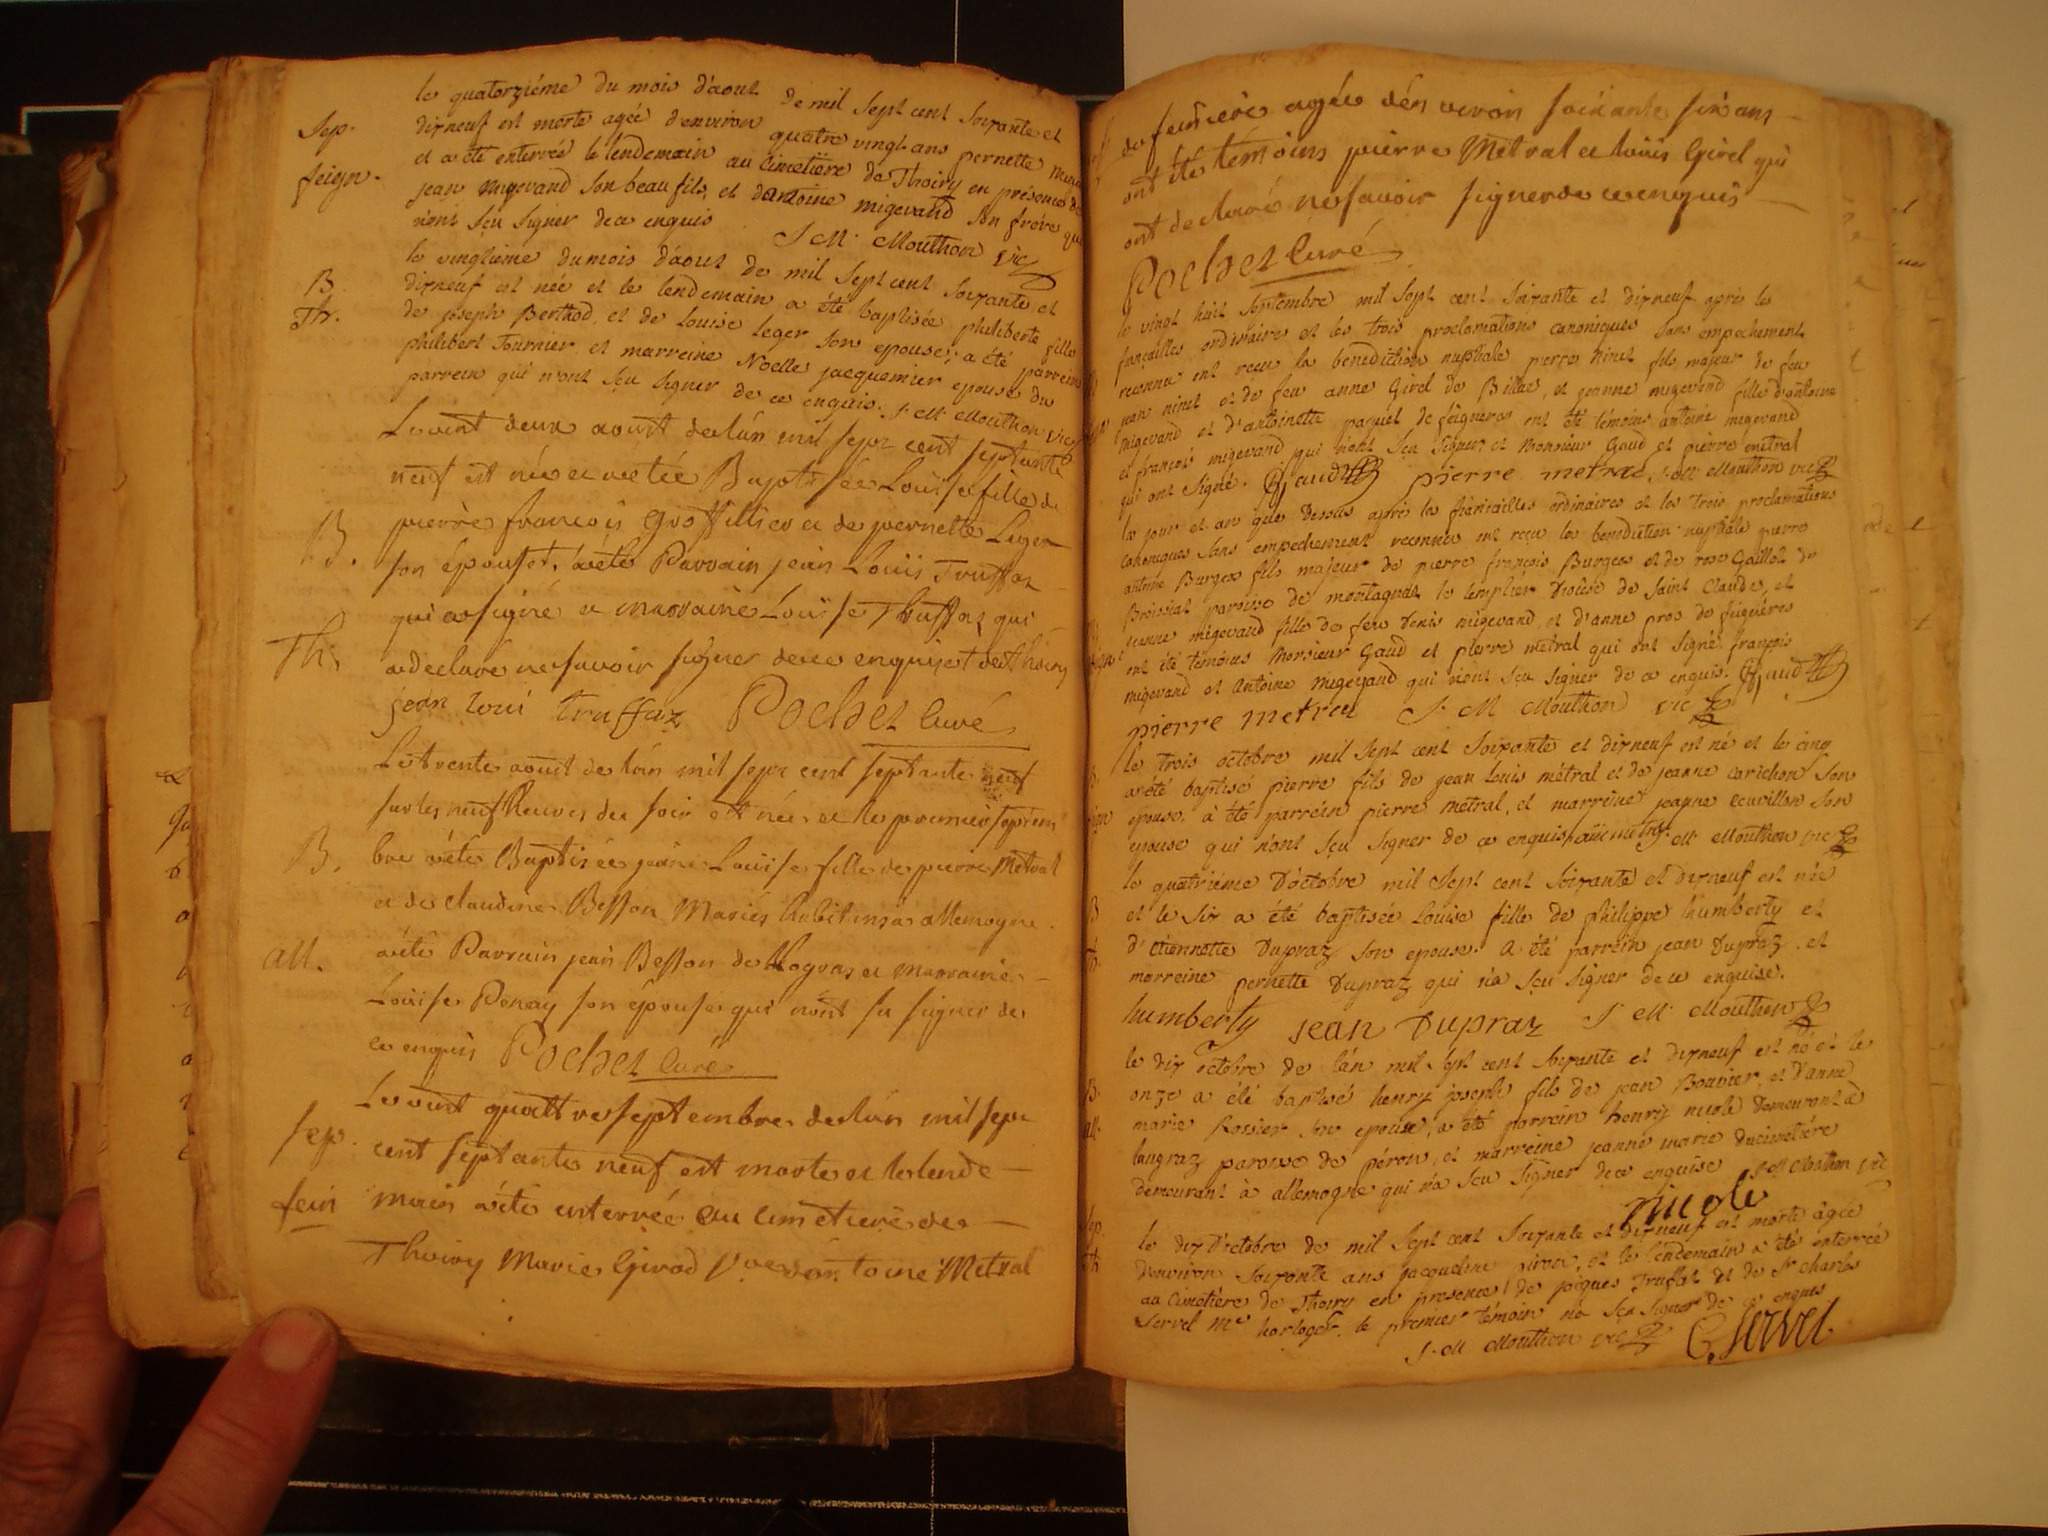 le quatorziéme du mois d'aout de mil sept cent soixante et
Sep. dixneuf est morte agée denviron quatre vingt ans pernette
feign. et a été enterreé le lendemain au cimetiére de Thoiry en présence de
jean migevand son beau fils, et d'antoine migevand son frére qui
n'ont sçu signer de ce enquis J M Mouthon vic
le vingtieme du mois d'aout de mil sept cent soixante et
B. dixneuf est née et le lendemain a été baptisée philiberte fille
Th. de joseph Berthod et de Louise Leger son epouse; a été parrein
philibert Fournier et marreine Noelle jacquemier epouse du
parrein qui n'ont sçu signer de ce enquis. J. M. Mouthon vic
Le vint deux aoust de lán mil sept cent septante
neuf est née et a etée Baptisée Louise fille de
B. pierre francois Grosfillier et de pernette Leger
son épouse et. à eté Parrain jean Loüis Truffaz
qui a signé et marraine Loüise Thruffaz qui
Th. a declaré ne savoir signer de ce enquise et de Thoiry
jean loui truffaz Pochet Curé
Le trente aoust de lán mil sept cent septante neuf
sur les neuf heures du soir est née et le premier septem
B. bre a éte Baptisée jeane Loüise fille de pierre Metral
et de claudine Besson Mariés habitans a allemogne
all. a éte Parrain jean Besson de Logras et marraine
Loüise Penay son épouse qui n'ont su signer de
ce enquis Pochet Curé
Le vint quattre septembre de lán mil sept
sep. cent septante neuf est morte et le lende
fein main a éte enterrée au cimetiere de
Thoiry Marie Girod Vve d'antoine Metral
de feuniére agée dén veron soixante six ans
ont été témoins pierre Métral et louis Girel qui
ont declaré ne savoir signer de ce enquis
Pochet Curé
le vingt huit septembre mil sept cent soixante et dixneuf aprés les
fiançailles ordinaires et les trois proclamations canoniques sans empechement
reconnu ont reçu la benediction nuptiale pierre ninet fils majeur de feu
jean ninet et de feu anne Girel de Billac, et jeanne migevand fille d'antoine
migevand et d'antoinette paquet de feigneres ont été témoins antoine migevand
et françois migevand qui n'ont sçu signer, et Monsieur Gaud et pierre metral
qui ont signé. Gaud pierre metral J. M. Mouthon vic
le jour et an que dessus aprés les fiancailles ordinaires et les trois proclamations
canoniques sans empechement reconnu ont reçu la benediction nuptiale pierre
antoine Burgea fils majeur de pierre françois Burgea et de rose Gaillot de
Broissiat paroisse de montagnat le templier diocése de saint Claude, et
jeanne migevand fille de feu Denis migevand et d'anne pros de feigneres
ont été temoins Monsieur Gaud et pierre metral qui ont signé. françois
migevand et antoine migevand qui n'ont sçu signer de ce enquis. Gaud
pierre metral J. M Mouthon vic
le trois octobre mil sept cent soixante et dixneuf est né et le cinq
a été baptisé pierre fils de jean Louis métral et de jeanne corichon son
epouse. à été parrein pierre metral, et marreine jeanne ecuvillon son
epouse qui n'ont sçu signer de ce enquis J. M. Mouthon vic
le quatriéme d'octobre mil sept cent soixante et dixneuf est née
B et le six a été baptisée Louise fille de philippe humberty et
Th. d'etiennette Dupraz son epouse. a été parrein jean Dupraz. et
marreine pernette Dupraz qui n'a sçu signer de ce enquise.
humberty jean Dupraz J M Mouthon
le dix octobre de lán mil sept cent soixante et dixneuf est né et le
B. onze a été baptisé henry joseph fils de jean Bouvier, et d'anne
all. marie Rossier son epouse, a été parrein henry nicole demeurant à
Langraz paroisse de péron, et marreine jeanne marie ducimetiére
demeurant à allemogne qui n'a sçu signer de ce enquise J M Mouthon vic
nicole
Sep. le dix d'octobre de mil sept cent soixante et dixneuf est morte agée
Th d'environ soixante ans jacqueline piron, et le lendemain a été enterrée
au cimetiére de Thoiry en presence de jacques Truffat et de St charles
Servel Me horloger. le premier témoin n'a sçu signer de ce enquis
J. M Mouthon vic C. servel